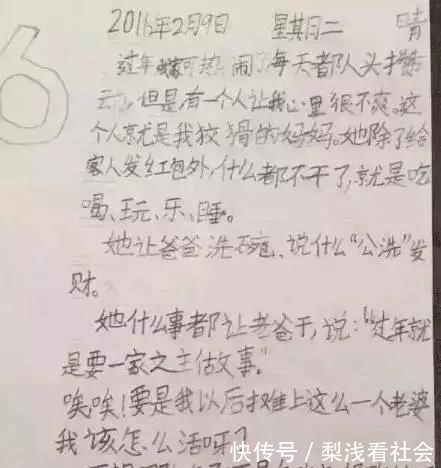 6
2016年2月9日 星期二 晴
过年我家可热闹了,每天都人头攒
动。但是,有一个人让我心里很不爽。这
个人就是我狡猾的妈妈。她除了给
客人发红包外,什么都不干了,就是吃
喝、玩、乐、睡。
她让爸爸洗碗、说什么“公洗”发
财。
她什么事都让老爸干,说:“过年就
是要一家之主做事。”
唉唉!要是我以后摊上这么一个老婆
我该怎么活呀?
快传号/梨浅看社会